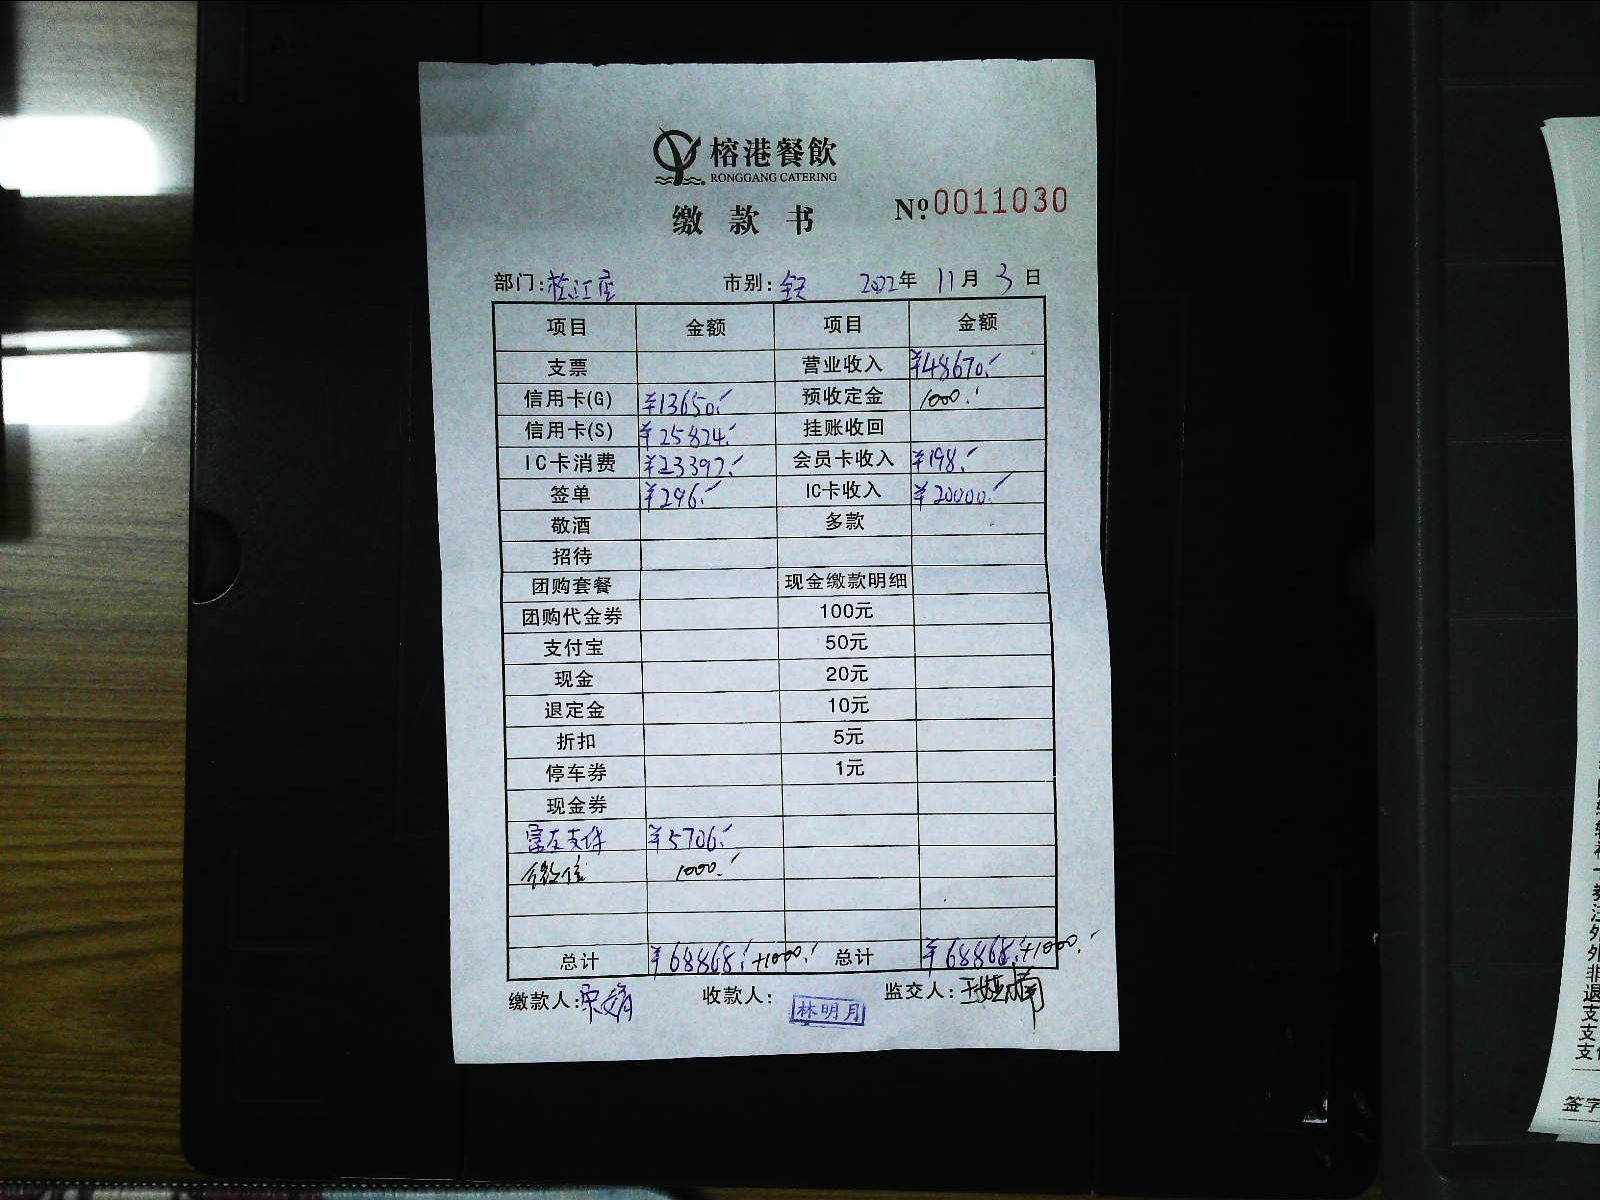 榕港餐飲
RONGGANG CATERING
缴款书
№ 0011030
部门: 松江店 市别: 全天 2022年 11月 3日
项目 金额 项目 金额
支票 营业收入 ¥48670.-
信用卡(G) ¥13650.- 预收定金 1000.-
信用卡(S) ¥25824.- 挂账收回
IC卡消费 ¥23392.- 会员卡收入 ¥198.-
签单 ¥296.- IC卡收入 ¥20000.-
敬酒 多款
招待
团购套餐 现金缴款明细
团购代金券 100元
支付宝 50元
现金 20元
退定金 10元
折扣 5元
停车券 1元
现金券
富友支付 ¥5706.-
微信 1000.-
总计 ¥68868.-+1000.- 总计 ¥68868.-+1000.-
缴款人: 收款人: 林明月 监交人:
签字